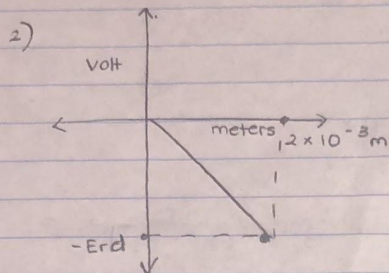 2)
Volt
meters
2 × 10⁻³ m
-Erd